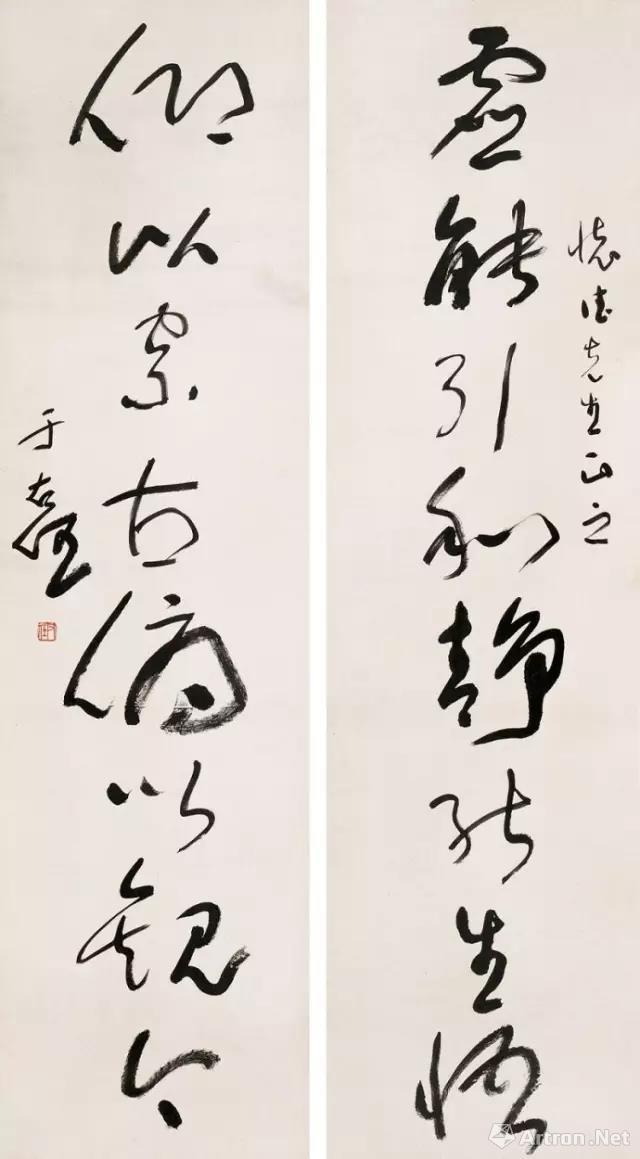 懷德先生正之
虛能引和靜能生悟
仰以察古俯以觀今
于右任
Artron.Net